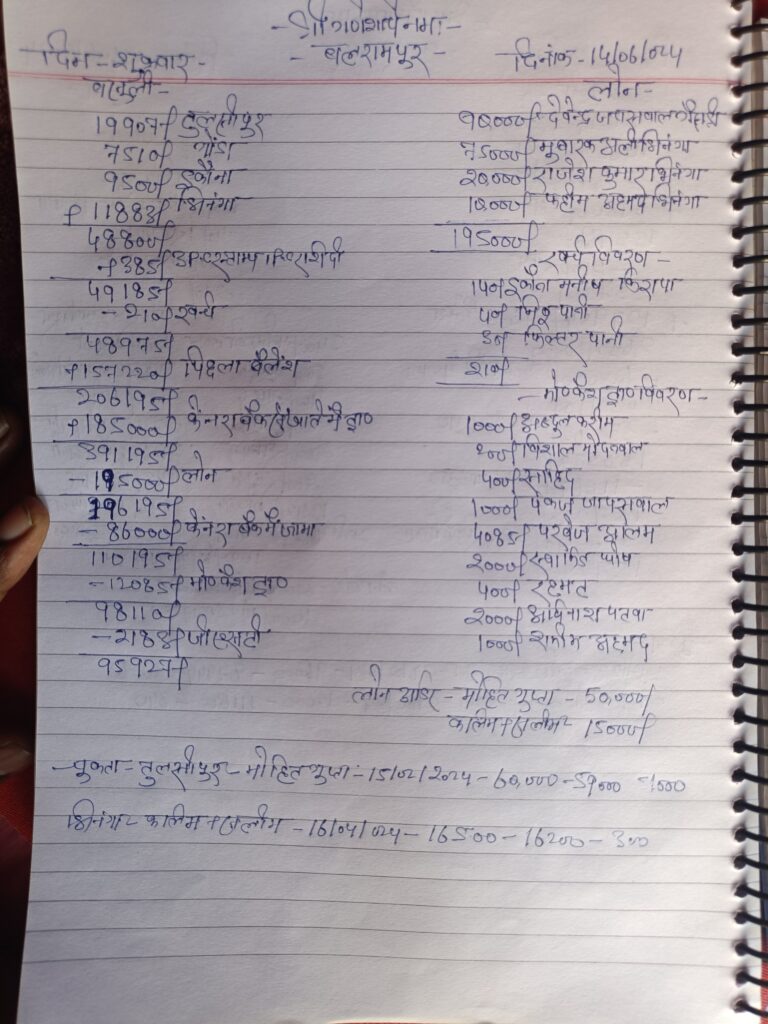 - श्री गणेशाय नमः -
दिन - शुक्रवार -
- बलरामपुर -
दिनांक - 14/06/024
वसूली -
19907/ तुलसीपुर
7510/ गोंडा
9500/ इकौना
+ 11883/ भिनंगा
48800/
+ 385/
49185/
- 210/ खर्च
48975/
+ 157220/ पिछला बैलेंस
206195/
+ 185000/ केनरा बैंक खाते में ट्रा०
391195/
- 195000/ लोन
196195/
- 86000/ केनरा बैंक में जमा
110195/
- 12085/ मो० कैश ट्रा०
98110/
- 2183/ जीएसटी
95927/
लोन -
90,000/ देवेन्द्र जायसवाल
75000/ मुबारक अली भिनंगा
20,000/ राजेश कुमार भिनंगा
10,000/ फहीम अहमद भिनंगा
195000/
खर्च विवरण -
140/ इकौना मनीष किराया
40/ पानी
30/ फिल्टर पानी
210/
- मो० कैश ट्रा० विवरण -
1000/ अब्दुल करीम
200/ विशाल मोदनवाल
400/ साहिद
1000/ पंकज जायसवाल
4085/ परवेज आलम
2000/ घोष
400/ रहमत
2000/ अविनाश पटवा
1000/ शमीम अहमद
लोन आदि - मोहित गुप्ता - 50,000/
कलिम + सलीम - 15000/
- चुकता - तुलसीपुर - मोहित गुप्ता - 15/02/2024 - 60,000 - 59000 = 1000
भिनंगा - कलिम + सलीम - 16/04/024 - 16500 - 16200 - 300